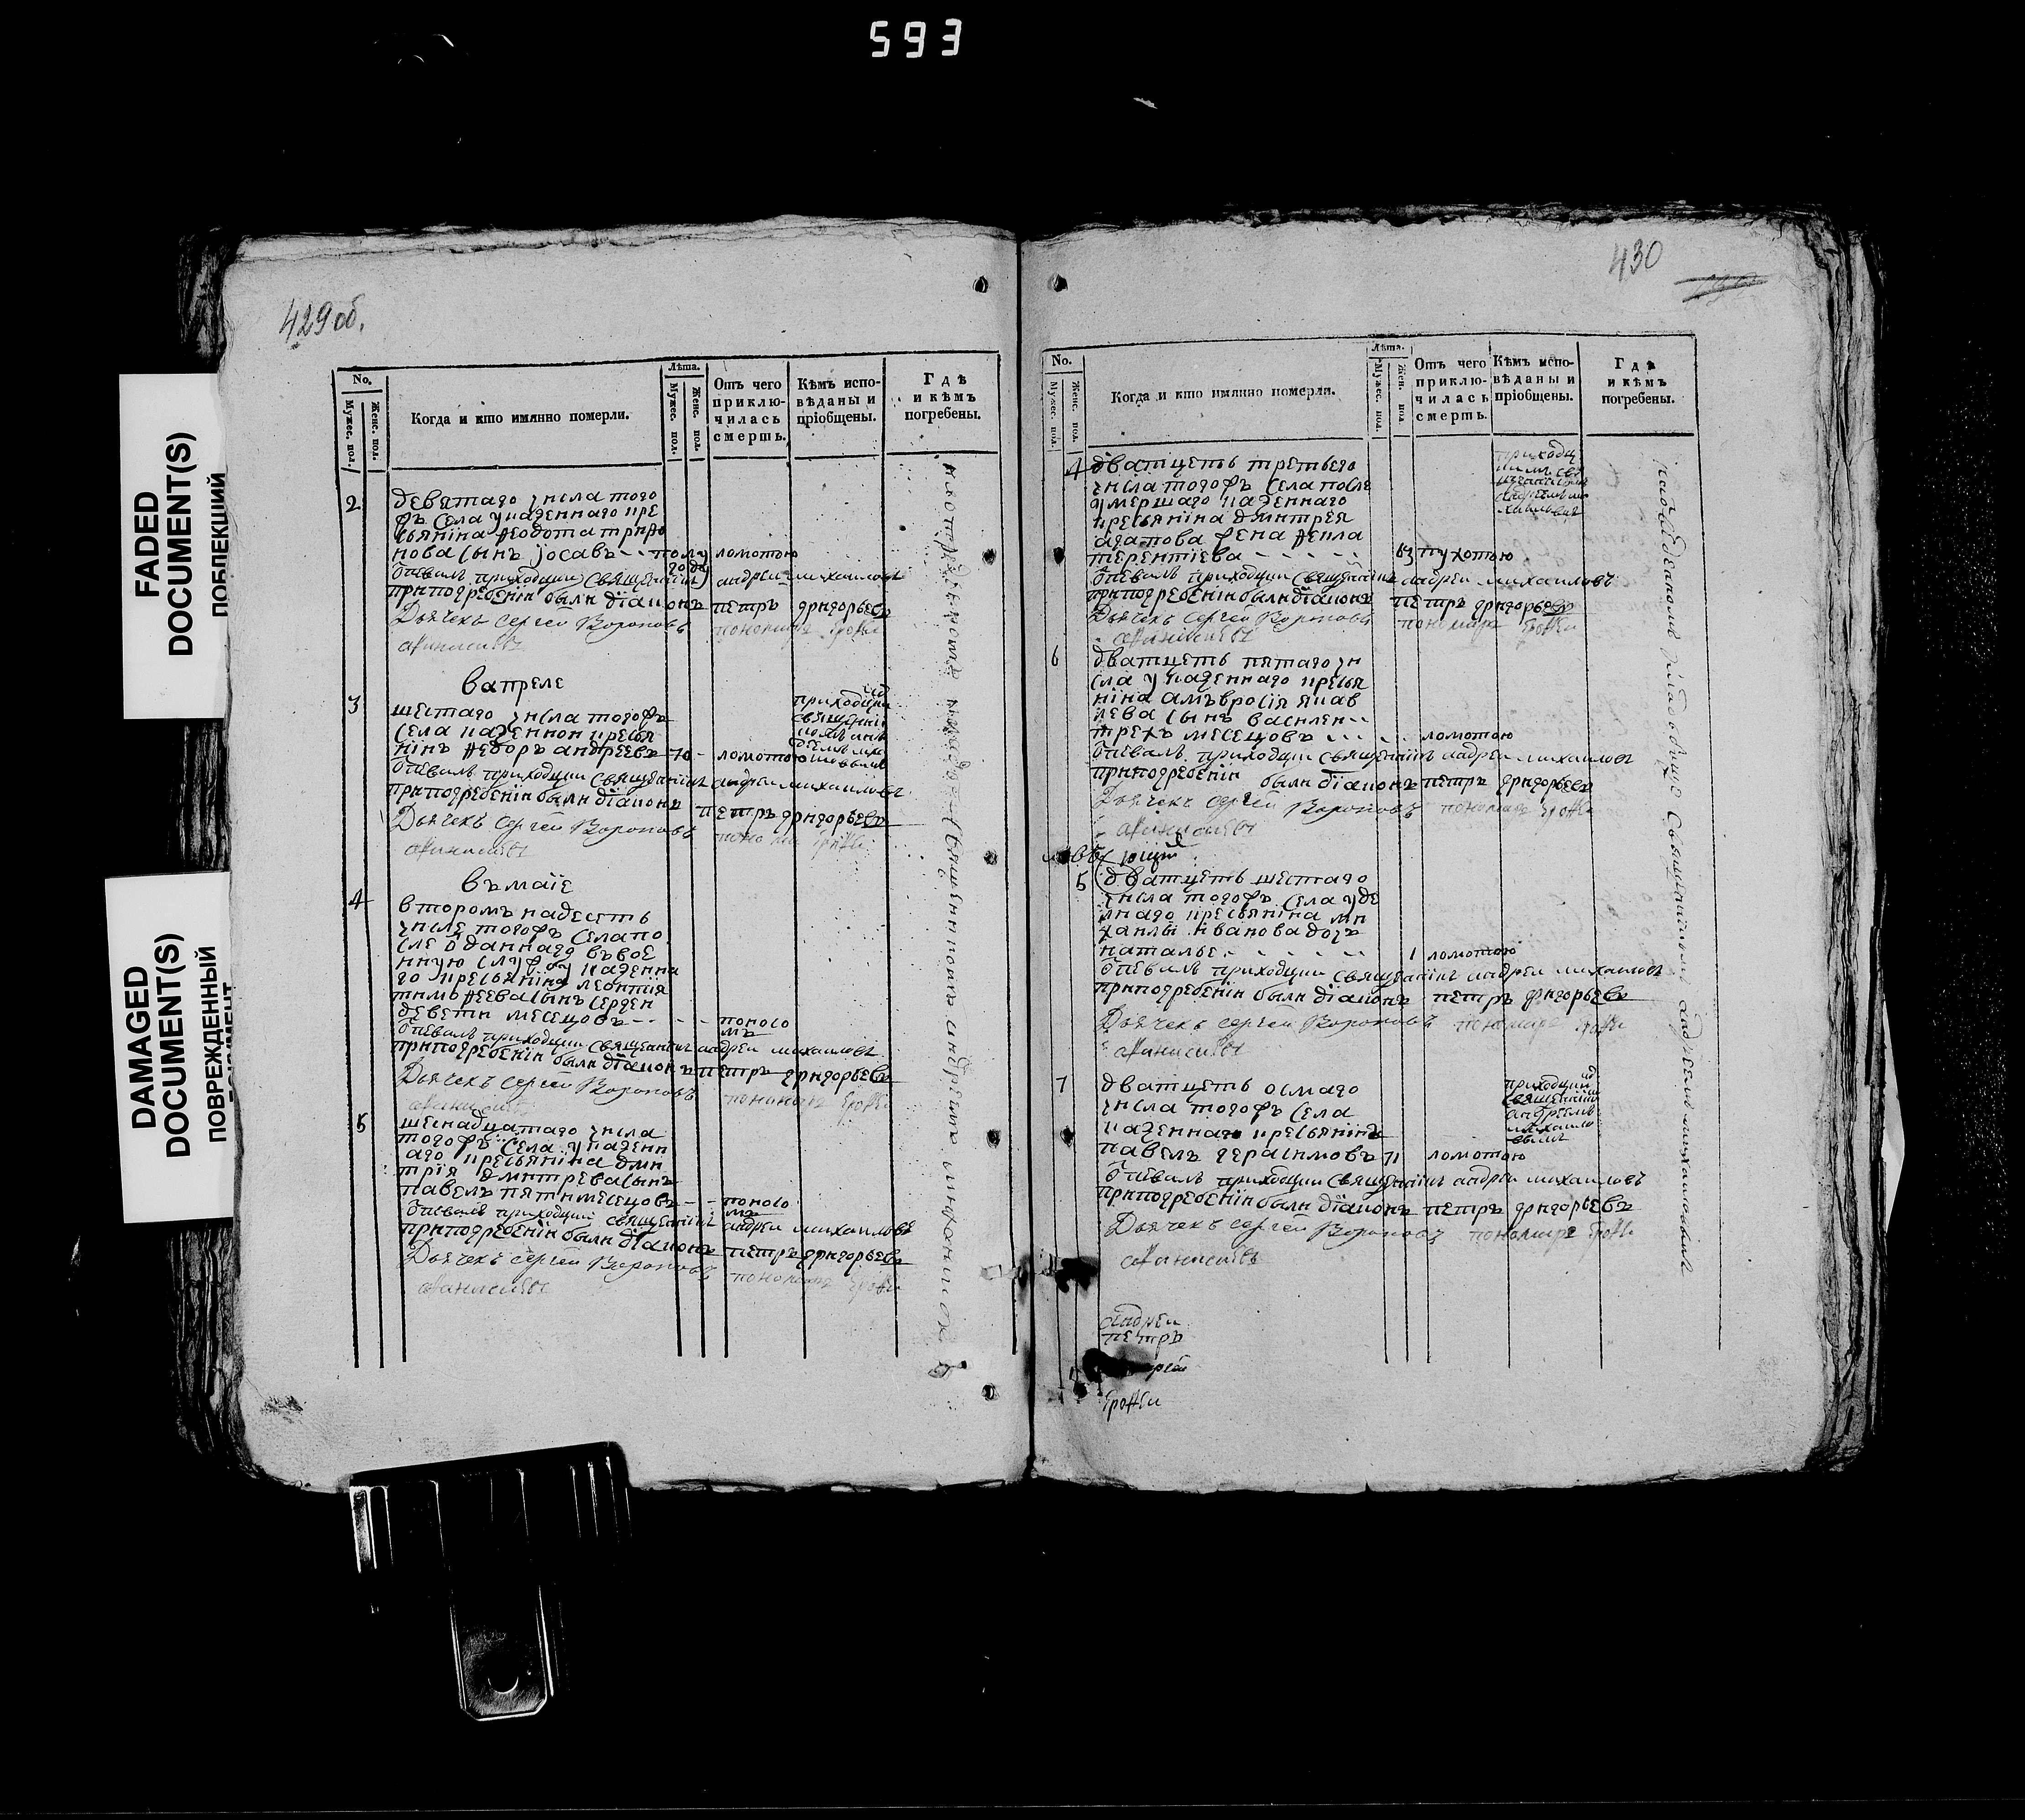 593
FADED
DOCUMENT(S)
ПОБЛЕКШИЙ
DAMAGED
DOCUMENT(S)
ПОВРЕЖДЕННЫЙ
429 об.
No.
Мужес. пол.
Женс. пол.
Когда и кто имянно померли.
Лѣта.
Мужес. пол.
Женс. пол.
Отъ чего
приклю-
чилась
смерть.
Кѣмъ испо-
вѣданы и
пріобщены.
Гдѣ
и кѣмъ
погребены.
2 девятаго числа того
жъ села указеннаго кре
стьянина
сынъ іосавъ -- полу ломотою
года
отпевалъ приходции священникъ андреи михаиловъ
припогребении были діаконъ петръ григорьевъ
Дьячекъ Сергей Вороновъ пономарь Ерофеи
Афанасьевъ
вапреле
3 шестаго числа тогожъ
села казеннои кресья
нинъ Ѳедоръ андреевъ 70 - ломотою
приходции
священни
отпевалъ приходции священникъ андреи михаиловъ
припогребении были діаконъ петръ григорьевъ
Дьячекъ Сергей Вороновъ пономарь Ерофеи
Афанасьевъ
въ маіе
4 второмъ надесеть
числе тогожъ села по
сле отданнаго въ вое
нную службу казенна
го кресьянина леонтия
тимоѲеева сынъ сергеи
девети месецовъ -- - поносо
мъ
отпевалъ приходции священникъ андреи михаиловъ
припогребении были діаконъ петръ григорьевъ
Дьячекъ Сергей Вороновъ пономарь Ерофеи
Афанасьевъ
5 шеснадцатаго числа
тогожъ села указенн
аго кресьянина дми
трія дмитрева сынъ
павелъ пяти месецовъ -- поносо
мъ
отпевалъ приходции священникъ андреи михаиловъ
припогребении были діаконъ петръ григорьевъ
Дьячекъ Сергей Вороновъ пономарь Ерофеи
Афанасьевъ
священникомъ андреемъ
430
No.
Мужес. пол.
Женс. пол.
Когда и кто имянно померли.
Лѣта.
Мужес. пол.
Женс. пол.
Отъ чего
приклю-
чилась
смерть.
Кѣмъ испо-
вѣданы и
пріобщены.
Гдѣ
и кѣмъ
погребены.
4 дватцеть третьего
числа тогожъ села после
умершаго казеннаго
кресьянина дмитрея
агапова жена Ѳекла
терентіева - - - - - 63 пухотою
отпевалъ приходции священникъ андреи михаиловъ
припогребении были діаконъ петръ григорьевъ
Дьячекъ Сергей Вороновъ пономарь Ерофеи
Афанасьевъ
6 дватцеть пятаго чи
сла указеннаго кресья
нина амъвросія яков
лева сынъ василеи --
трехъ месецовъ - - - - ломотою
отпевалъ приходции священникъ андреи михаиловъ
припогребении были діаконъ петръ григорьевъ
Дьячекъ Сергей Вороновъ пономарь Ерофеи
Афанасьевъ
5 дватцеть шестаго
числа тогожъ села уде
лнаго кресьянина ми
хаилы иванова дочъ
наталье - - - - - 1 ломотою
отпевалъ приходции священникъ андреи михаиловъ
припогребении были діаконъ петръ григорьевъ
Дьячекъ Сергей Вороновъ пономарь Ерофеи
Афанасьевъ
7 дватцеть осмаго
числа тогожъ села
казеннаго кресьянинъ
павелъ герасимовъ 71 ломотою
приходции
священни
андреемъ
михаило
вымъ
отпевалъ приходции священникъ андреи михаиловъ
припогребении были діаконъ петръ григорьевъ
Дьячекъ Сергей Вороновъ пономарь Ерофеи
Афанасьевъ
Андреи
петръ
Ерофеи
кладбище священникомъ андреемъ михаиловымъ